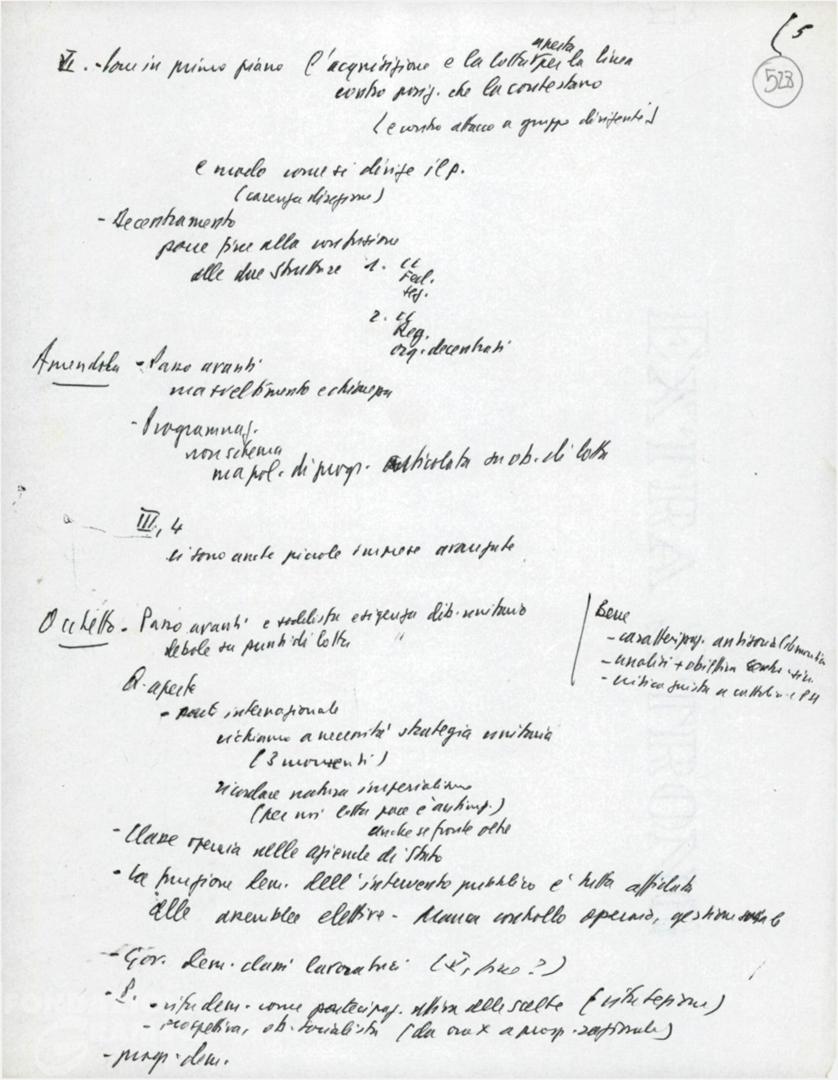 5
528
VI. - porre in primo piano l'acquisizione e la lotta aperta per la linea
contro posiz. che la contestano
(e contro attacco a gruppo dirigente)
e modo come si dirige il p.
(carenza direzione)
- Decentramento
porre fine alla confusione
alle due strutture 1. CC
Fed.
sez.
2. CC
Reg.
org. decentrati
Amendola - Passo avanti
ma
- Programmaz.
non schema
ma pol. di progr. articolata su ob. di lotta
III, 4
ci sono anche piccole imprese avanzate
Occhetto - Passo avanti e soddisfa esigenza dib. unitario
debole su punti di lotta
Bene
- caratterizzaz. antisocialdemocratica
- analisi + obiettivi
- critica giusta a cattolici e PSI
Q. aperte
- parte internazionale
richiamo a necessità strategia unitaria
(3 momenti)
ricordare natura imperialismo
(per noi lotta pace è antimp.)
anche se fronte oltre
- Classe operaia nelle aziende di Stato
- La funzione dem. dell'intervento pubblico è tutta affidata
alle assemblee elettive - Manca controllo operaio, gestione
- Gov. dem. classi lavoratrici (V, fine?)
- P. - vita dem. come partecipaz. attiva alle scelte
- prospettiva, ob. socialista
- progr. dem.